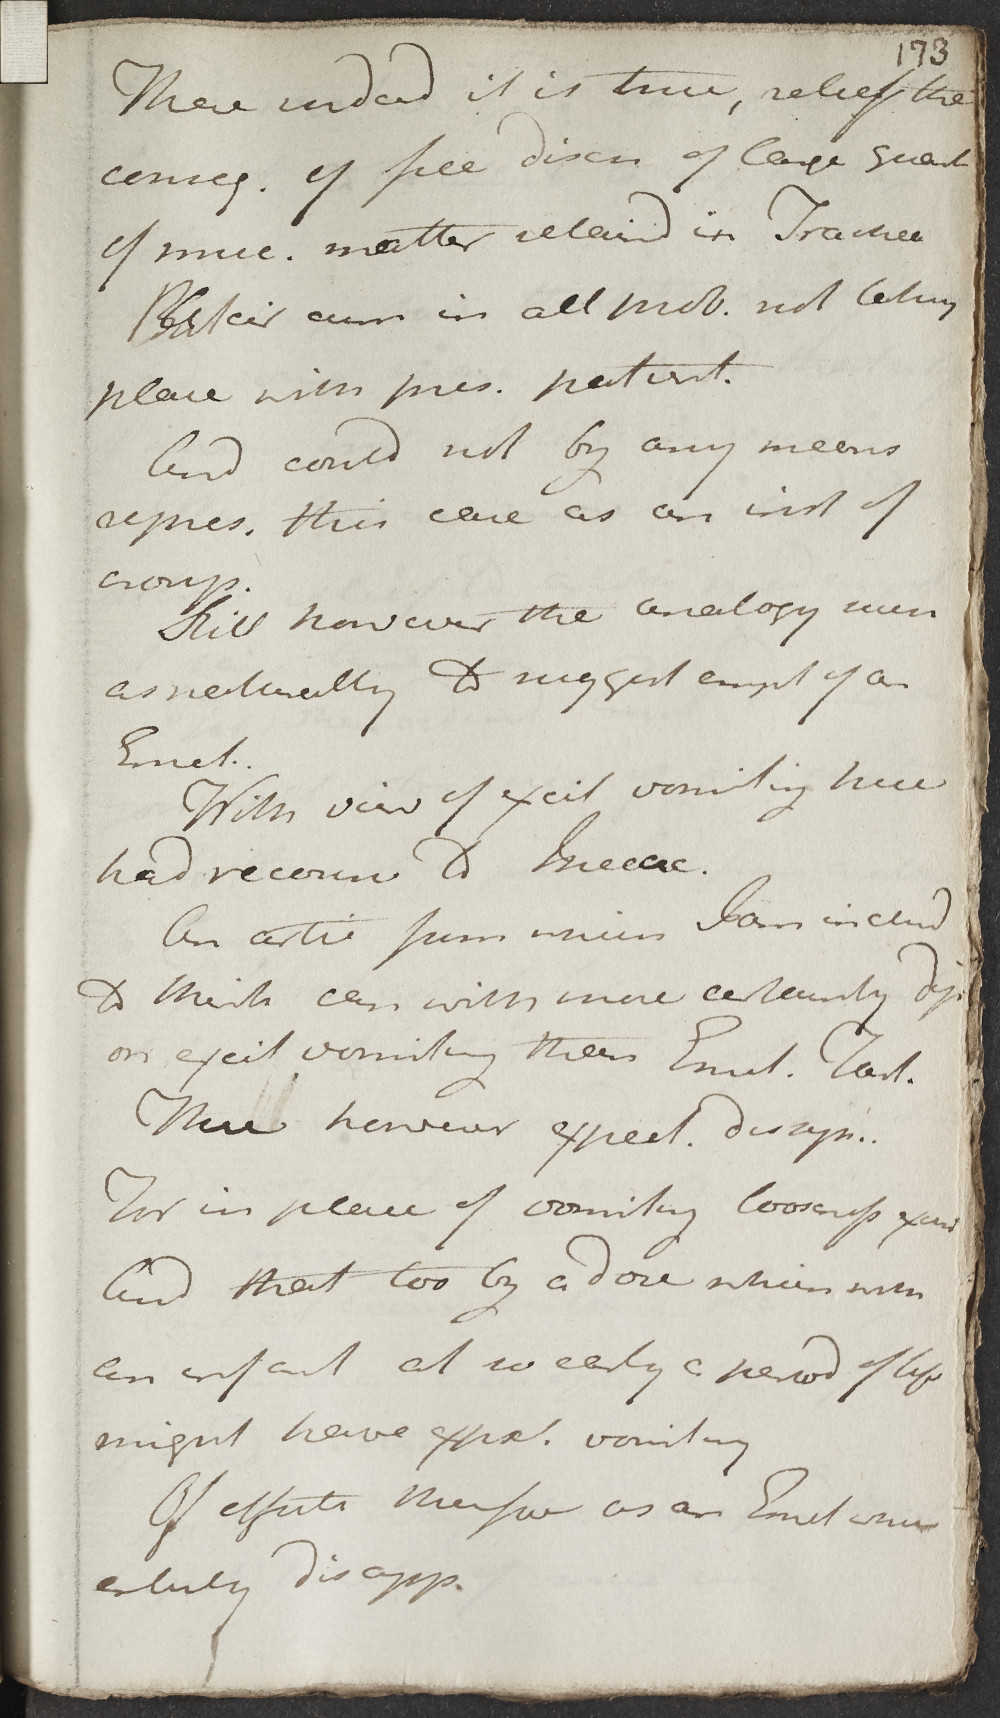 173
There indeed it is true, relief the
conseq. of free disch of large quant
of muc. matter retaind in Trachea
But this circum in all prob. not taking
place with pres. patient.
And could not by any means
repres. this case as an inst of
croup.
Still however the analogy seem
as naturally to suggest empt of an
Emet..
With view of excit vomiting here
had recourse to Ipecac.
An artic from which I am inclind
to think can with more certainty dep
on excit vomiting than Emet. Tart.
There however expect. disapp..
For in place of vomiting looseness
And that too by a dose which with
an infant at so early a period of life
might have expect. vomiting
Of effects therefore as an Emet were
entirely disapp.